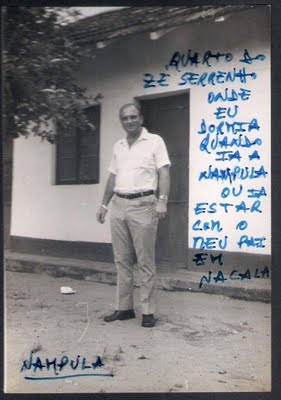 QUARTO DO
ZÉ SERRENHO
ONDE
EU
DORMIA
QUANDO
IA A
NAMPULA
OU IA
ESTAR
COM O
MEU PAI
EM
NACALA
NAMPULA